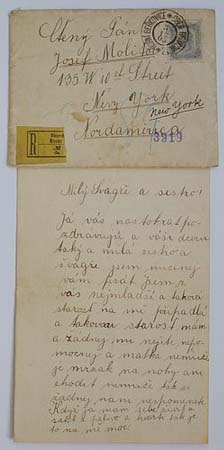 Ctený Pán
Josef Moli
135 W 10st Street
Nevy York
New York
Nordamerica
R
3313
Milý Švagře a sestro!
Já vás nastokrat po-
zdravuji a vaši dceru
taky a milá sestro a
švagře jsem nucenej
vám psát jsem z
vás nejmladší a takova
starost na mě připadla
a takovou starost mám
a žadnej mi nejni
mocnej a matka nemuže
je mrzak na nohy ani
chodit nemuže tak
žadnej nam nepomenek
Když ja mam sebe živit a
to na mě moc